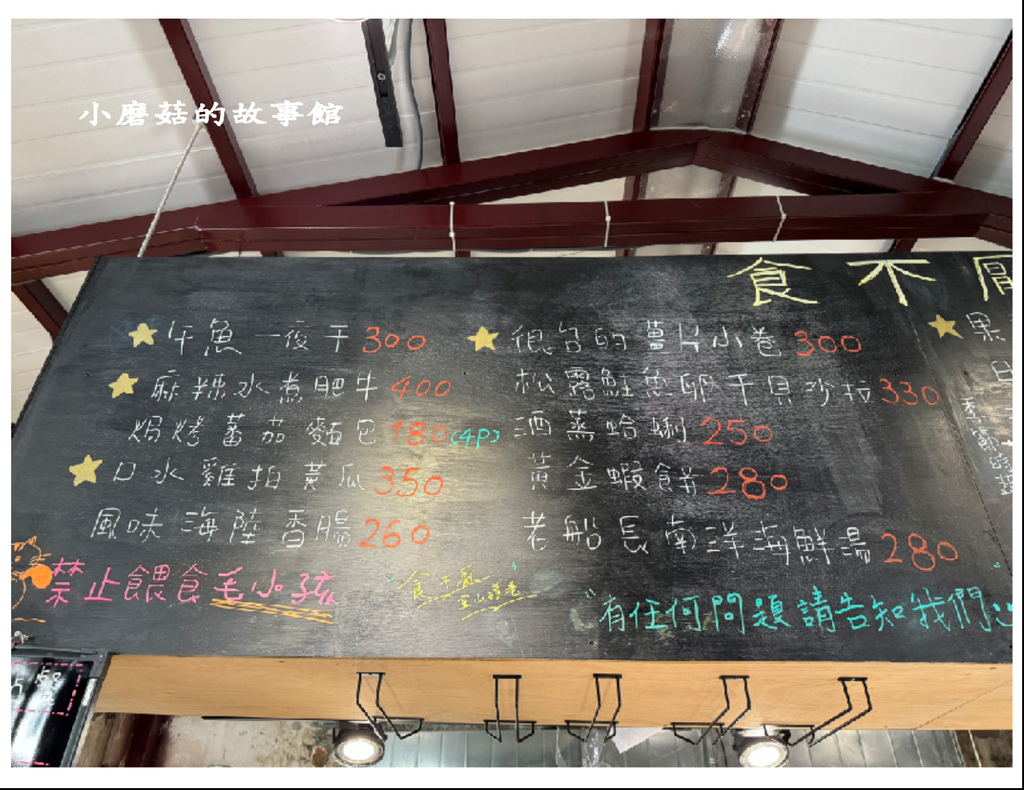 小磨菇的故事館
食不厭
午魚一夜干300
麻辣水煮肥牛400
焗烤蕃茄麵包180(4P)
口水雞拍黃瓜350
風味海陸香腸260
禁止餵食毛小孩
很台的薑片小卷300
松露鮭魚卵干貝沙拉330
酒蒸蛤蜊250
黃金蝦餅280
老船長南洋海鮮湯280
食不厭
"有任何問題請告知我們"
果
日
季節時蔬